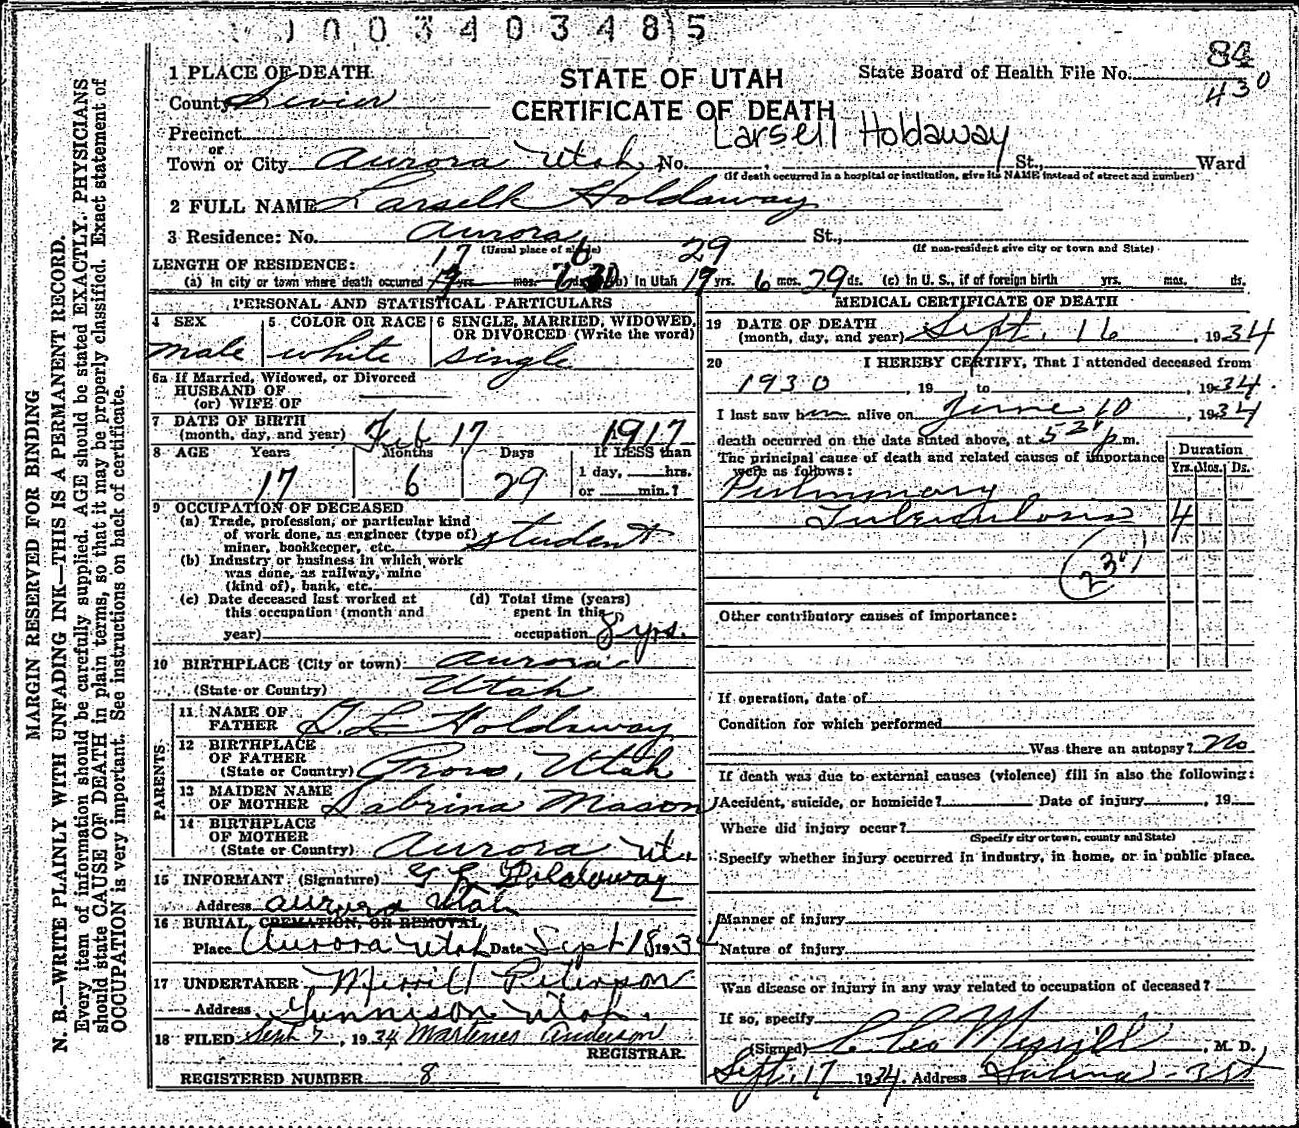 1003403485
MARGIN RESERVED FOR BINDING
N. B.—WRITE PLAINLY WITH UNFADING INK—THIS IS A PERMANENT RECORD.
Every item of information should be carefully supplied. AGE should be stated EXACTLY. PHYSICIANS
should state CAUSE OF DEATH in plain terms, so that it may be properly classified. Exact statement of
OCCUPATION is very important. See instructions on back of certificate.
1 PLACE OF DEATH
STATE OF UTAH
CERTIFICATE OF DEATH
State Board of Health File No. 84
430
County Sevier
Precinct
or
Town or City Aurora Utah No. St., Ward
Larsell Holdaway
(If death occurred in a hospital or institution, give its NAME instead of street and number)
2 FULL NAME Larsell Holdaway
3 Residence: No. Aurora St.,
(Usual place of abode) (If non-resident give city or town and State)
17 6 29
LENGTH OF RESIDENCE:
(a) In city or town where death occurred yrs. mos. ds. (b) In Utah 17 yrs. 6 mos. 29 ds. (c) In U. S., if of foreign birth yrs. mos. ds.
PERSONAL AND STATISTICAL PARTICULARS
4 SEX
male
5 COLOR OR RACE
white
6 SINGLE, MARRIED, WIDOWED, OR DIVORCED (Write the word)
single
6a If Married, Widowed, or Divorced
HUSBAND OF
(or) WIFE OF
7 DATE OF BIRTH
(month, day, and year) Feb 17 1917
8 AGE Years Months Days If LESS than
17 6 29 1 day, hrs.
or min.?
9 OCCUPATION OF DECEASED
(a) Trade, profession, or particular kind
of work done, as engineer (type of)
miner, bookkeeper, etc. student
(b) Industry or business in which work
was done, as railway, mine
(kind of), bank, etc.
(c) Date deceased last worked at (d) Total time (years)
this occupation (month and spent in this
year) occupation 8 yrs.
10 BIRTHPLACE (City or town) Aurora
(State or Country) Utah
PARENTS
11 NAME OF
FATHER G. L. Holdaway
12 BIRTHPLACE
OF FATHER
(State or Country) Provo, Utah
13 MAIDEN NAME
OF MOTHER Sabrina Mason
14 BIRTHPLACE
OF MOTHER
(State or Country) Aurora Ut.
15 INFORMANT (Signature) G L Holdaway
Address aurora Utah
16 BURIAL, CREMATION, OR REMOVAL
Place Aurora Utah Date Sept 18 1934
17 UNDERTAKER Merrill Peterson
Address Gunnison Utah.
18 FILED Sept 7, 1934 Martenus Anderson
REGISTRAR.
REGISTERED NUMBER 8
MEDICAL CERTIFICATE OF DEATH
19 DATE OF DEATH
(month, day, and year) Sept. 16, 1934
20 I HEREBY CERTIFY, That I attended deceased from
1930, 19 , to , 1934.
I last saw him alive on June 10, 1934
death occurred on the date stated above, at 530 p.m.
The principal cause of death and related causes of importance
were as follows:
Duration
Yrs. Mos. Ds.
Pulmonary
Tuberculosis 4
(23)
Other contributory causes of importance:
If operation, date of
Condition for which performed
Was there an autopsy? No
If death was due to external causes (violence) fill in also the following:
Accident, suicide, or homicide? Date of injury , 19
Where did injury occur?
(Specify city or town, county and State)
Specify whether injury occurred in industry, in home, or in public place.
Manner of injury
Nature of injury
Was disease or injury in any way related to occupation of deceased?
If so, specify
(Signed) C Leo Merrill, M. D.
Sept. 17 1934. Address Salina